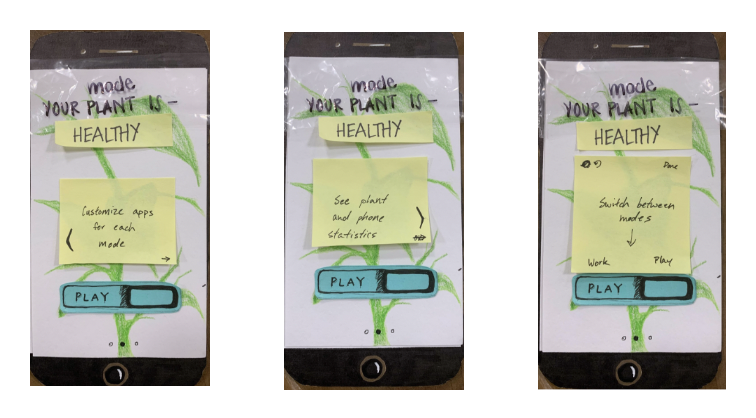 mode
YOUR PLANT IS -
HEALTHY
Customize apps
for each
mode
PLAY
mode
YOUR PLANT IS -
HEALTHY
See plant
and phone
statistics
PLAY
mode
YOUR PLANT IS -
HEALTHY
Done
Switch between
modes
Work Play
PLAY